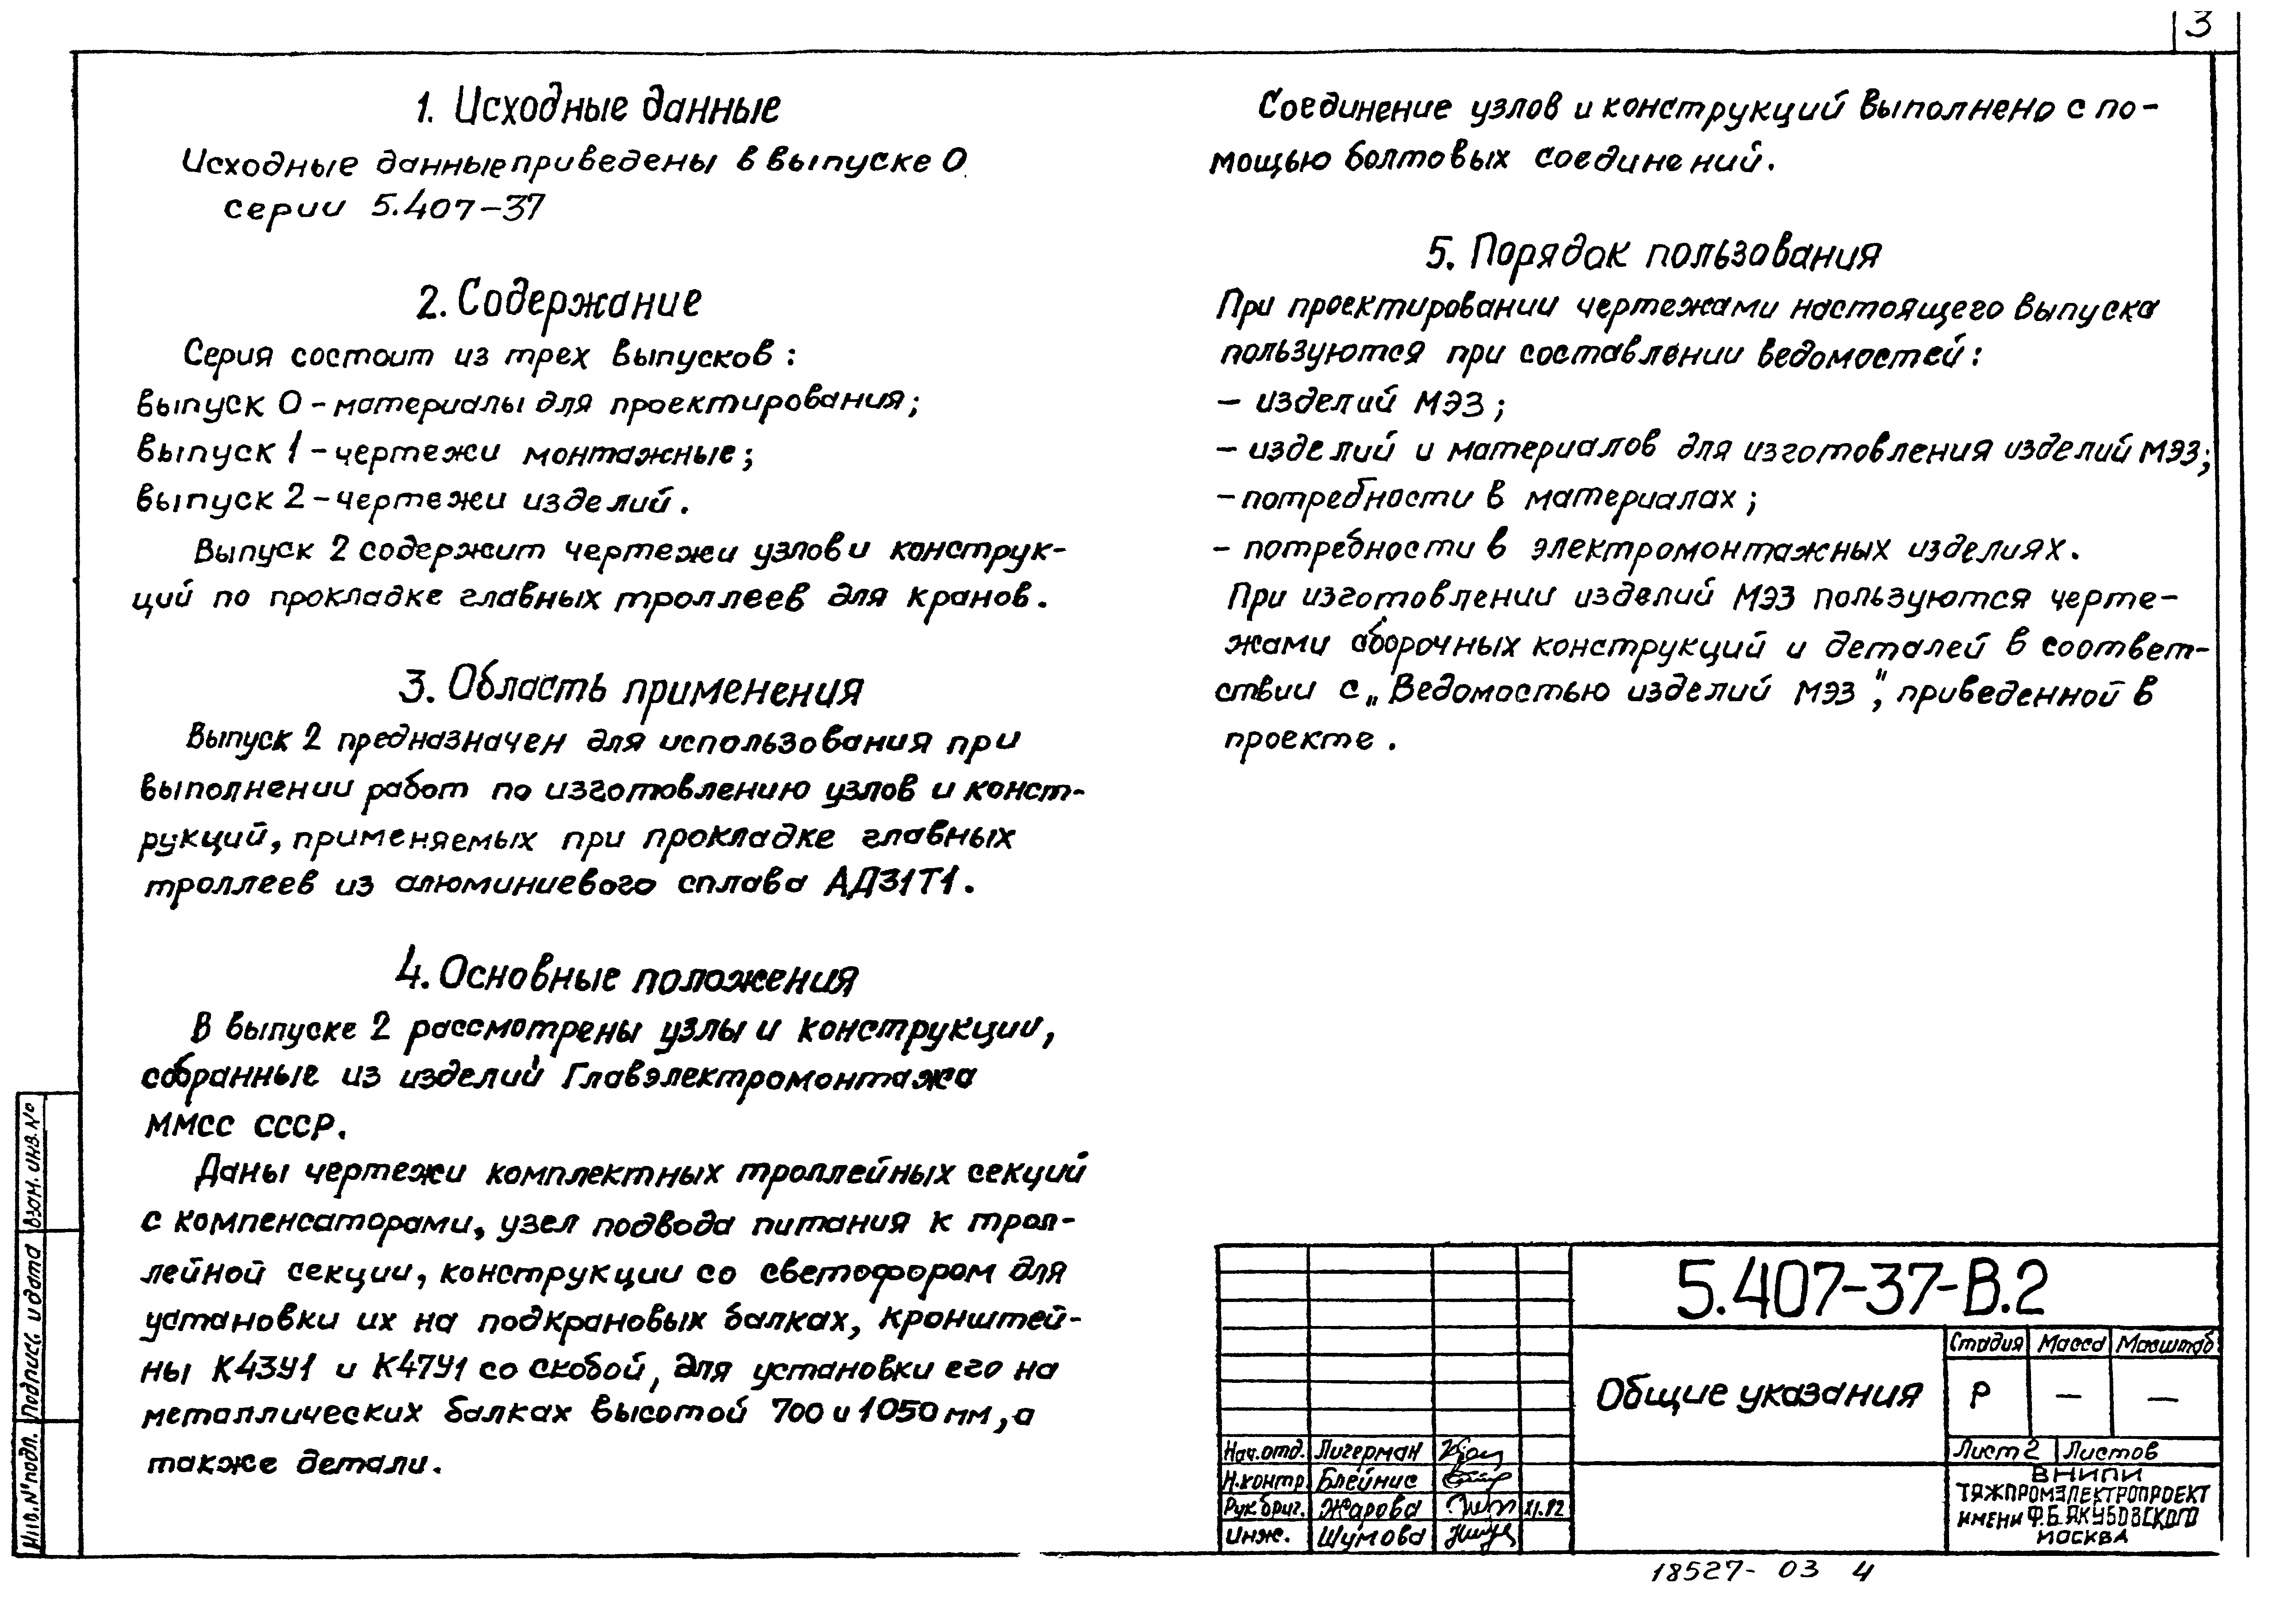 3
1. Исходные данные
Исходные данные приведены в выпуске 0
серии 5.407-37
2. Содержание
Серия состоит из трех выпусков:
выпуск 0 - материалы для проектирования;
выпуск 1 - чертежи монтажные;
выпуск 2 - чертежи изделий.
Выпуск 2 содержит чертежи узлов и конструк-
ций по прокладке главных троллеев для кранов.
3. Область применения
Выпуск 2 предназначен для использования при
выполнении работ по изготовлению узлов и конст-
рукций, применяемых при прокладке главных
троллеев из алюминиевого сплава АД31Т1.
4. Основные положения
В выпуске 2 рассмотрены узлы и конструкции,
собранные из изделий Главэлектромонтажа
ММСС СССР.
Даны чертежи комплектных троллейных секций
с компенсаторами, узел подвода питания к трол-
лейной секции, конструкции со светофором для
установки их на подкрановых балках, кронштей-
ны К43У1 и К47У1 со скобой, для установки его на
металлических балках высотой 700 и 1050 мм, а
также детали.
Соединение узлов и конструкций выполнено с по-
мощью болтовых соединений.
5. Порядок пользования
При проектировании чертежами настоящего выпуска
пользуются при составлении ведомостей:
- изделий МЭЗ;
- изделий и материалов для изготовления изделий МЭЗ;
- потребности в материалах;
- потребности в электромонтажных изделиях.
При изготовлении изделий МЭЗ пользуются черте-
жами сборочных конструкций и деталей в соответ-
ствии с „Ведомостью изделий МЭЗ", приведенной в
проекте.
Инв. № подл. Подпись и дата Взам. инв. №
5.407-37-В.2
Общие указания
Стадия Масса Масштаб
Р - -
Лист 2 Листов
ВНИПИ
ТЯЖПРОМЭЛЕКТРОПРОЕКТ
ИМЕНИ Ф.Б. ЯКУБОВСКОГО
МОСКВА
Нач.отд. Лигерман
Н.контр. Блейнис
Рук.бриг. Жарова XI.82
Инж. Шумова
18527-03 4